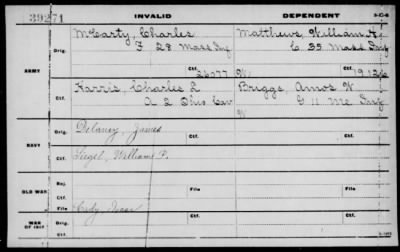 39271
INVALID
DEPENDENT
McCarty, Charles
Matthews, William H.
Orig.
F 28 Mass Inf
C 35 Mass Inf
ARMY
Ctf.
Ctf.
Harris, Charles L
Briggs, Amos W
Ctf.
A 2 Ohio Cav
G 11 Me Inf
W
Delaney, James
Orig.
Ctf.
NAVY
Siegel, William P.
Ctf.
Rej.
OLD WAR
Ctf.
File
WAR OF 1812
Ctf.